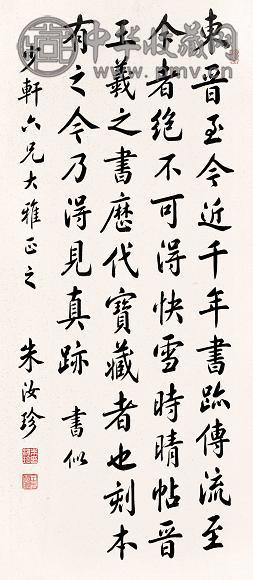 東晉至今近千年書跡傳流至
今者絶不可得快雪時晴帖晉
王羲之書歷代寶藏者也刻本
有之今乃得見真跡 書似
少軒六兄大雅正之 朱汝珍
中华收藏网
www.pmv.cn